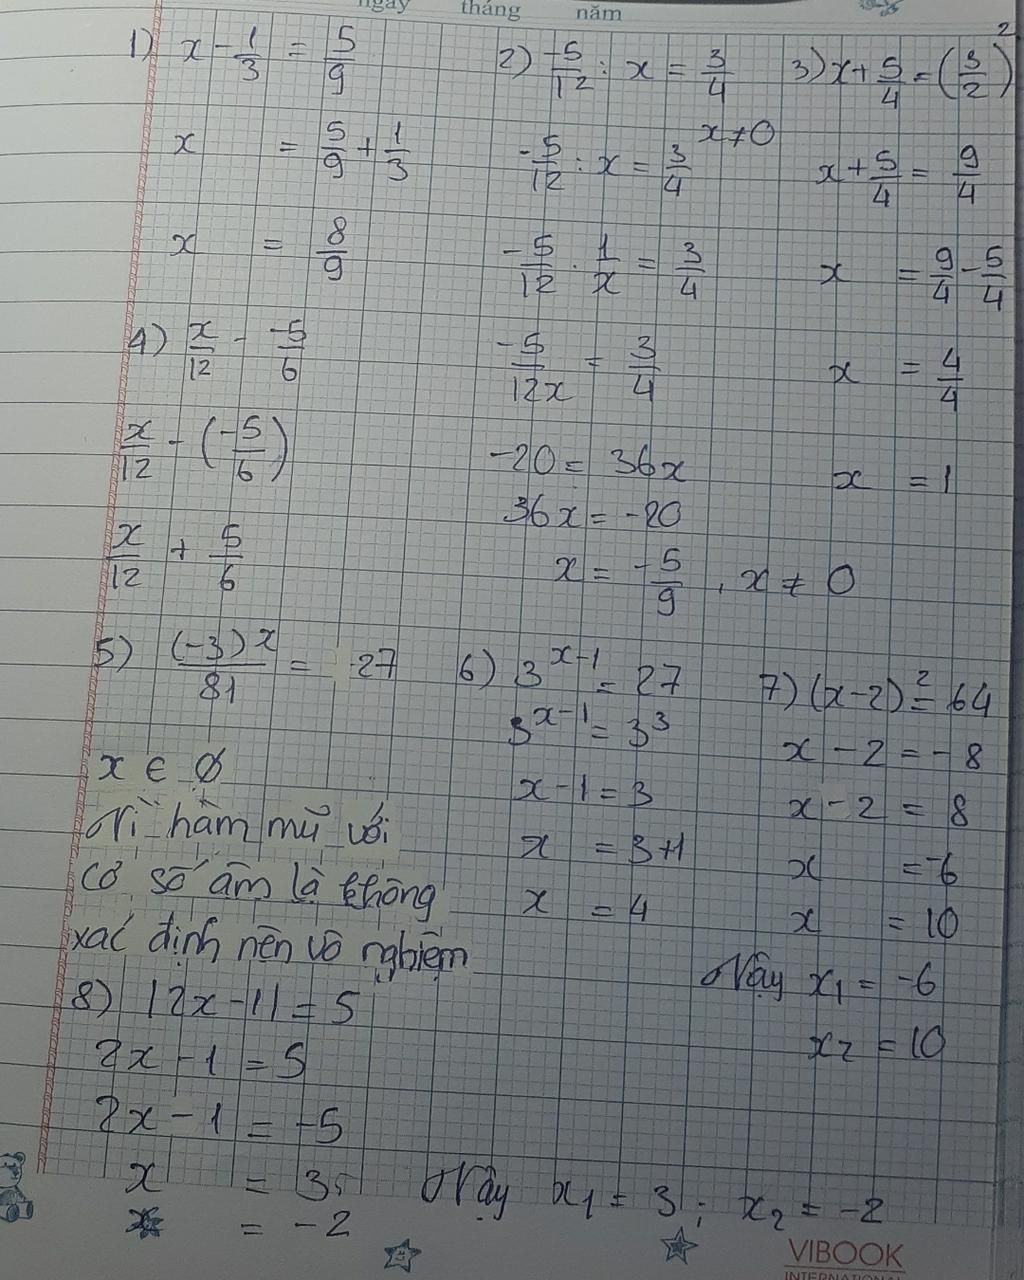 ngày tháng năm
1) x - 1/3 = 5/9
x = 5/9 + 1/3
x = 8/9
2) -5/12 : x = 3/4
x ≠ 0
-5/12 : x = 3/4
-5/12 . 1/x = 3/4
-5/12x = 3/4
-20 = 36x
36x = -20
x = -5/9 , x ≠ 0
3) x + 5/4 = (3/2)²
x + 5/4 = 9/4
x = 9/4 - 5/4
x = 4/4
x = 1
4) x/12 - -5/6
x/12 - (-5/6)
x/12 + 5/6
5) (-3)^x/81 = -27
x ∈ ∅
Vì hàm mũ với
cơ số âm là không
xác định nên vô nghiệm
6) 3^(x-1) = 27
3^(x-1) = 3³
x - 1 = 3
x = 3+1
x = 4
7) (x-2)² = 64
x - 2 = -8
x - 2 = 8
x = -6
x = 10
Vậy x₁ = -6
x₂ = 10
8) |2x-1| = 5
2x - 1 = 5
2x - 1 = -5
x = 3
x = -2
Vậy x₁ = 3 ; x₂ = -2
VIBOOK
INTERNATIONAL